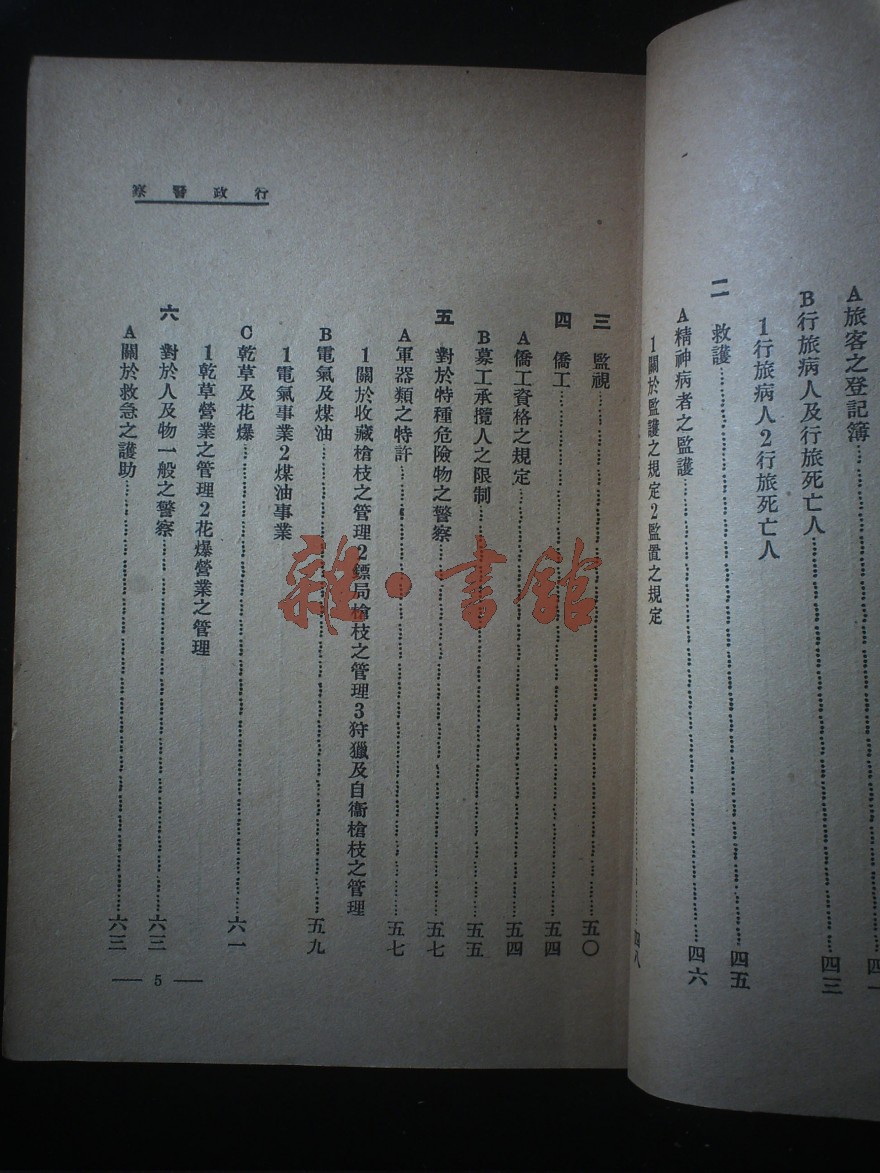 A旅客之登記簿……四一
B行旅病人及行旅死亡人……四三
1行旅病人2行旅死亡人
二 救護……四五
A精神病者之監護……四六
1關於監護之規定2監置之規定
……四八
行政警察
三 監視……五〇
四 僑工……五四
A僑工資格之規定……五四
B募工承攬人之限制……五五
五 對於特種危險物之警察……五七
A軍器類之特許……五七
1關於收藏槍枝之管理2鏢局槍枝之管理3狩獵及自衞槍枝之管理
B電氣及煤油……五九
1電氣事業2煤油事業
C乾草及花爆……六一
1乾草營業之管理2花爆營業之管理
六 對於人及物一般之警察……六三
A關於救急之護助……六三
— 5 —
雜·書館